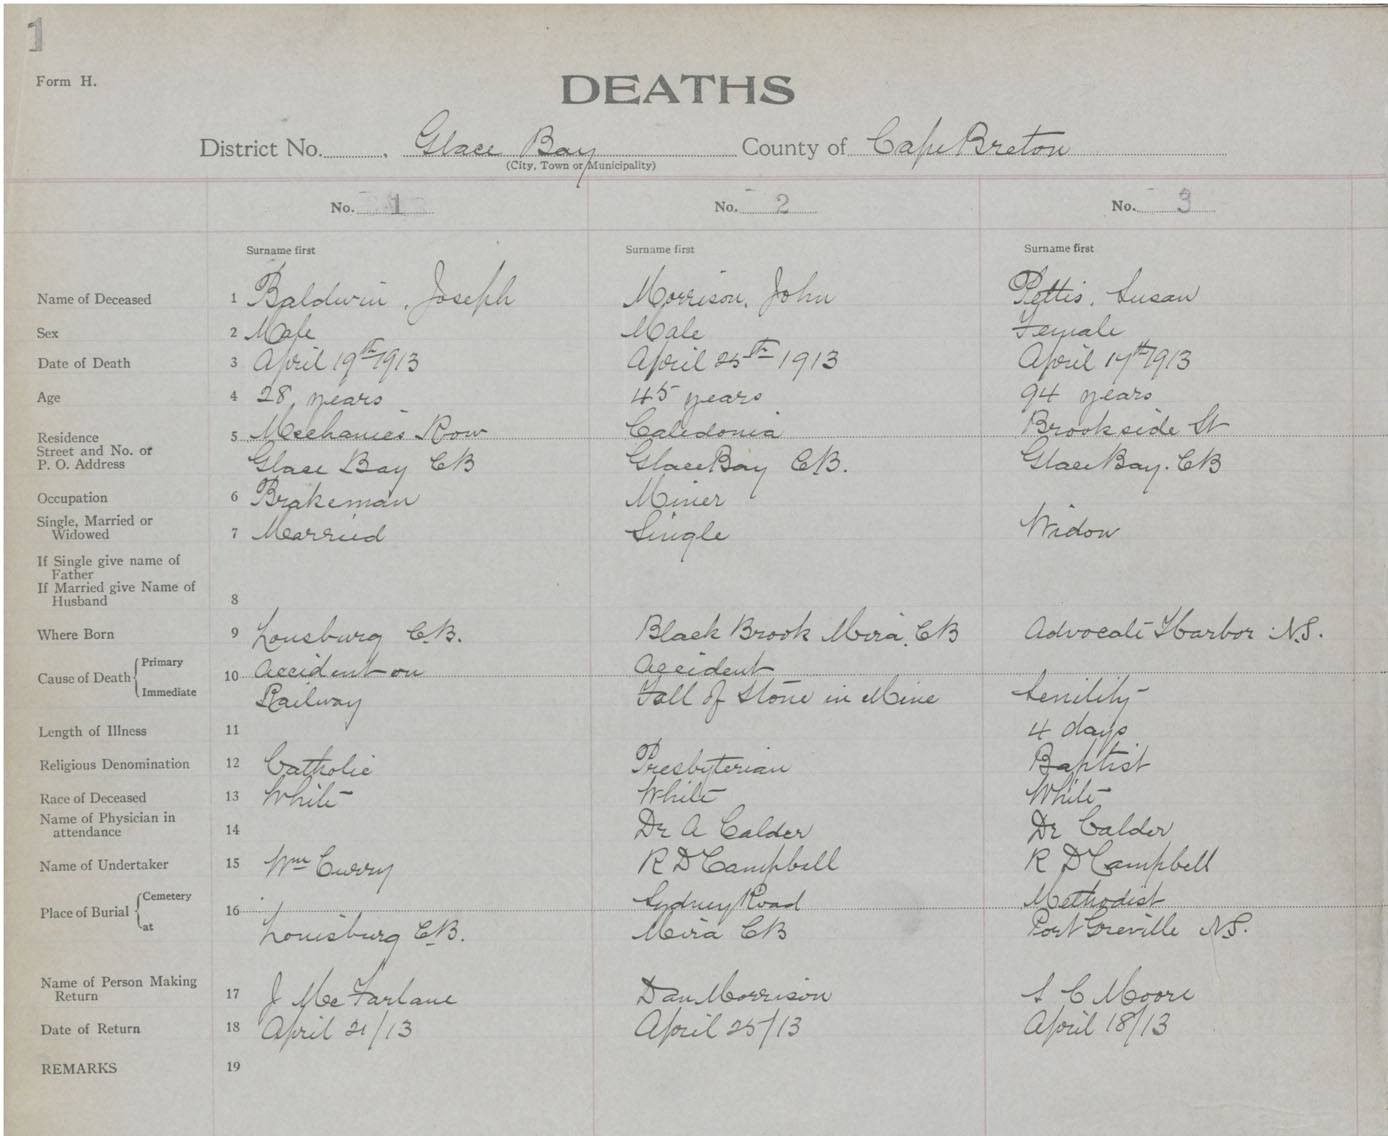 1
Form H.
DEATHS
District No. Glace Bay County of Cape Breton
(City, Town or Municipality)
No. 1 No. 2 No. 3
Surname first Surname first Surname first
Name of Deceased 1 Baldwin, Joseph Morrison, John Pettis, Susan
Sex 2 Male Male Female
Date of Death 3 April 19th 1913 April 25th 1913 April 17th 1913
Age 4 28 years 45 years 94 years
Residence 5 Mechanics Row Caledonia Brookside St
Street and No. or
P. O. Address Glace Bay CB Glace Bay CB. Glace Bay. CB
Occupation 6 Brakeman Miner
Single, Married or
Widowed 7 Married Single Widow
If Single give name of
Father
If Married give Name of
Husband 8
Where Born 9 Lousburg C.B. Black Brook Mira, CB Advocate Harbor N.S.
Cause of Death { Primary 10 Accident on Accident
Immediate Railway Fall of Stone in Mine Senility
Length of Illness 11 4 days
Religious Denomination 12 Catholic Presbyterian Baptist
Race of Deceased 13 White White White
Name of Physician in
attendance 14 Dr A Calder Dr Calder
Name of Undertaker 15 Wm Curry R D Campbell R D Campbell
Place of Burial { Cemetery 16 Sydney Road Methodist
at Louisburg C.B. Mira CB Port Greville N.S.
Name of Person Making
Return 17 J McFarlane Dan Morrison S C Moore
Date of Return 18 April 21/13 April 25/13 April 18/13
REMARKS 19